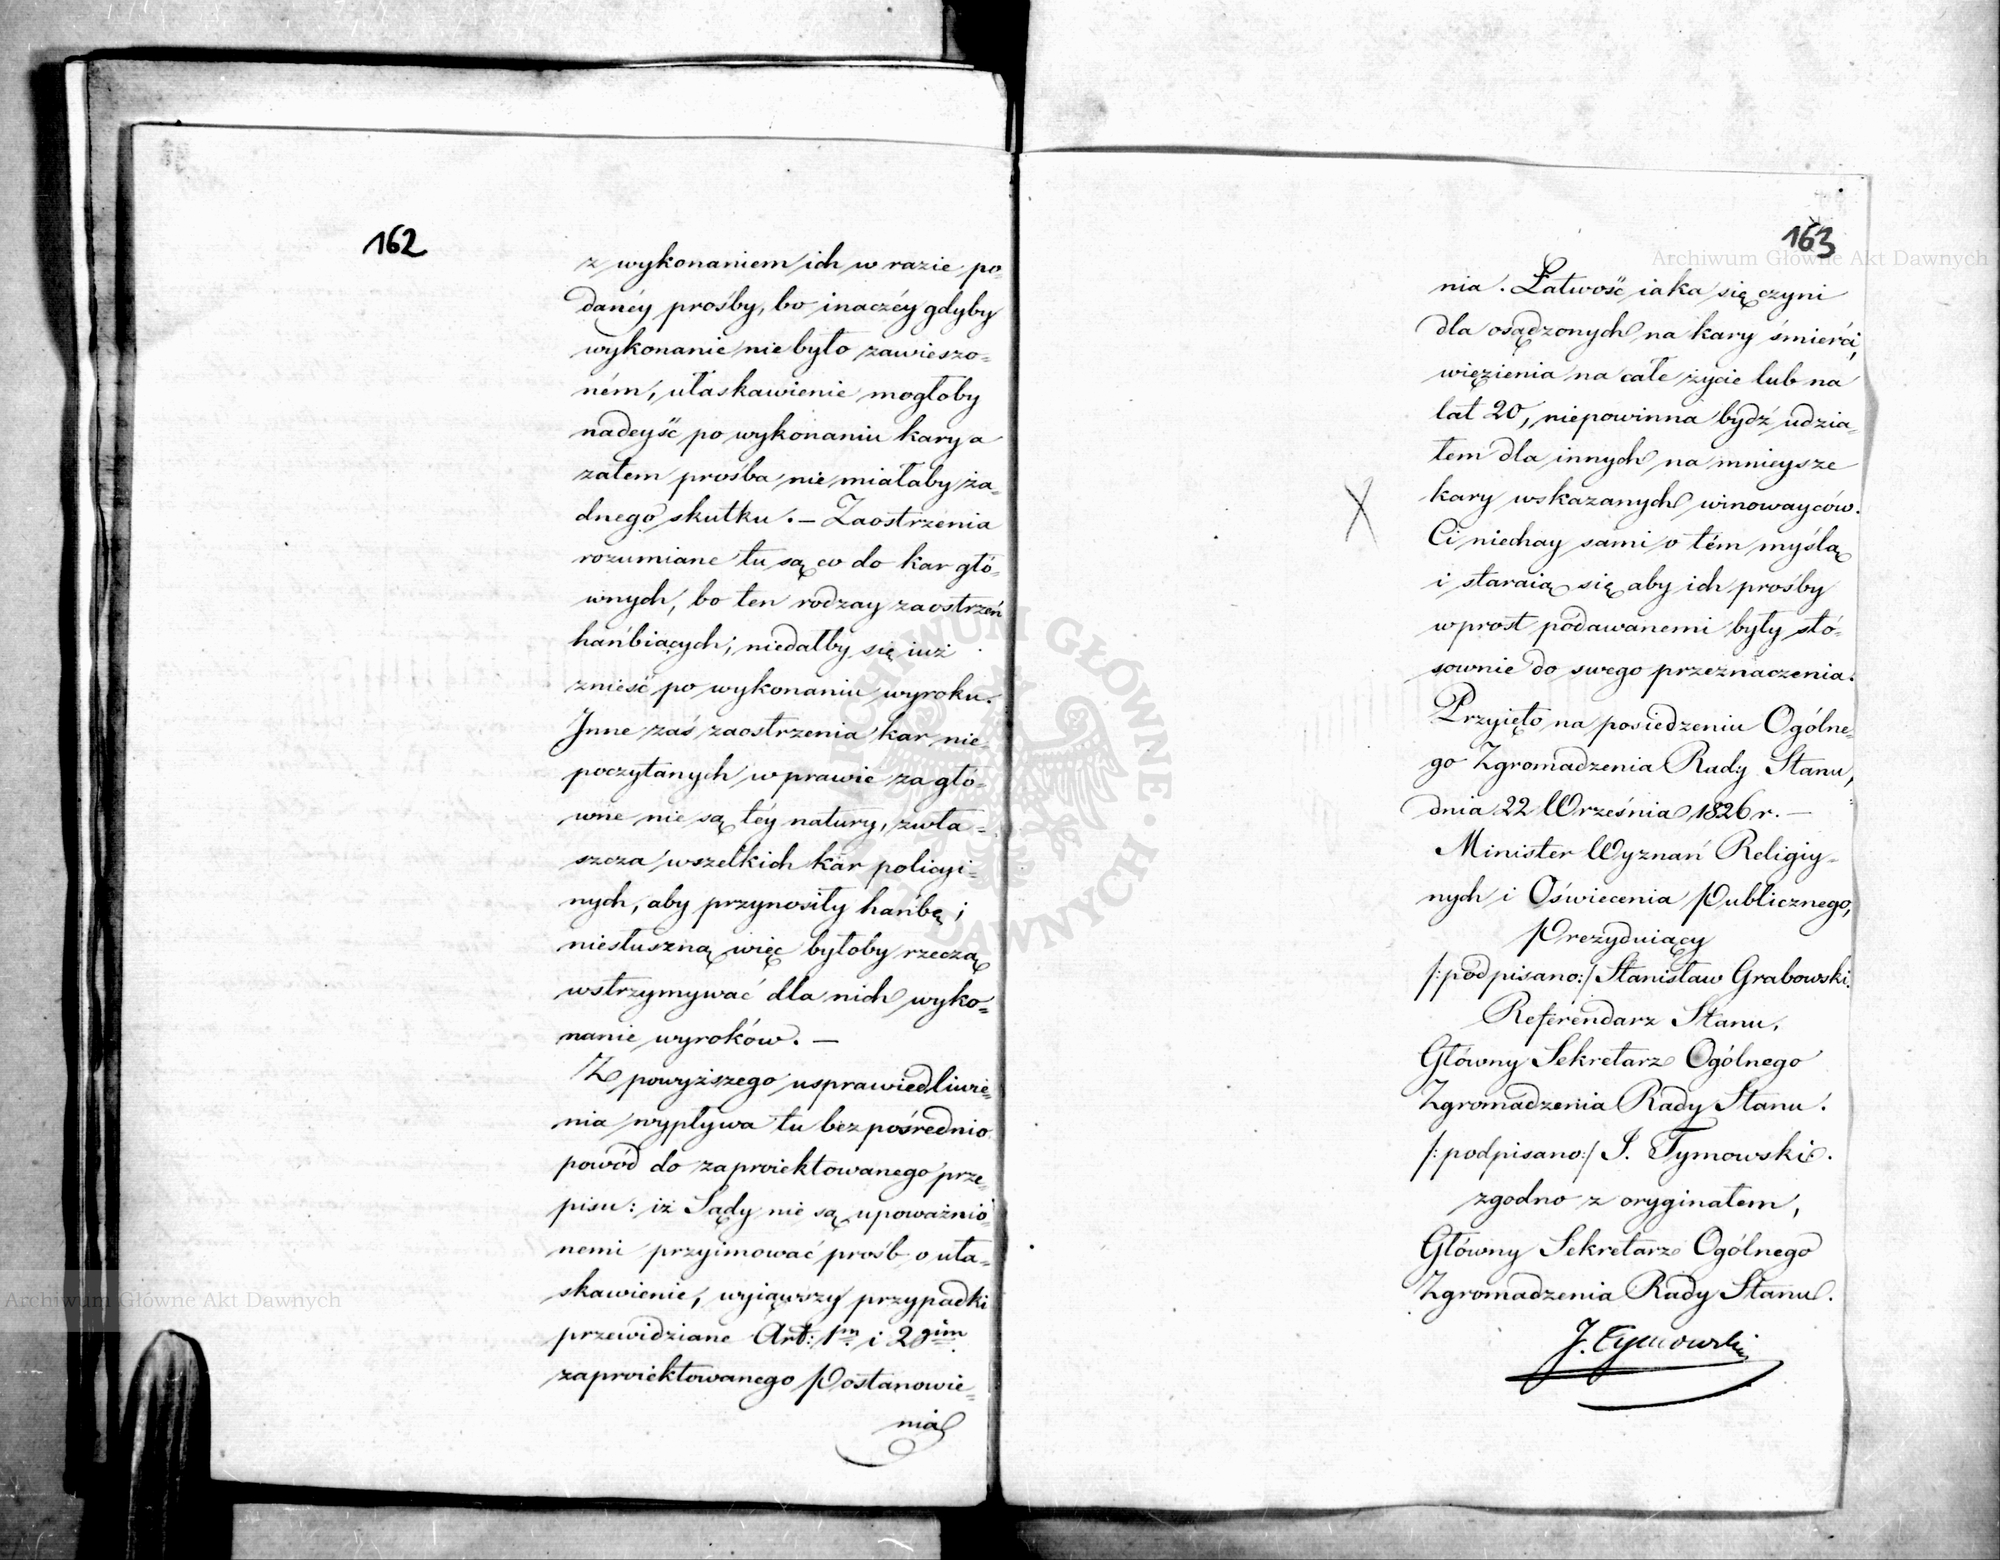 162
z wykonaniem ich w razie po-
danéy prośby, bo inaczéy gdyby
wykonanie nie było zawieszo-
ném, ułaskawienie mogłoby
nadeyść po wykonaniu kary a
zatem prośba nie miałaby ża-
dnego skutku. — Zaostrzenia
rozumiane tu są co do kar głó-
wnych, bo ten rodzay zaostrzeń
hańbiących, niedałby się iuż
znieść po wykonaniu wyroku.
Inne zaś zaostrzenia kar nie
poczytanych w prawie za głó-
wne nie są téy natury, zwła-
szcza wszelkich kar policyi-
nych, aby przynosiły hańbę;
niesłuszną więc byłoby rzeczą
wstrzymywać dla nich wyko-
nanie wyroków. —
Z powyższego usprawiedliwie-
nia wypływa tu bezpośrednio
powód do zaproiektowanego prze-
pisu: iż Sądy nie są upoważnio-
nemi przyimować prośb o uła-
skawienie, wyiąwszy przypadki
przewidziane Art: 1m i 2gim
zaproiektowanego Postanowie-
nia
163
nia. Łatwość iaka się czyni
dla osądzonych na kary śmierci,
więzienia na całe życie lub na
lat 20, niepowinna bydź udzia-
łem dla innych na mnieysze
kary wskazanych winowayców.
X
Ci niechay sami o tém myślą
i staraią się aby ich prośby
wprost pódawanemi były stó-
sownie do swego przeznaczenia.
Przyięto na posiedzeniu Ogólne-
go Zgromadzenia Rady Stanu,
dnia 22 Września 1826 r. —
Minister Wyznań Religiy-
nych i Oświecenia Publicznego,
Prezyduiący
/:pódpisano:/ Stanisław Grabowski.
Referendarz Stanu,
Główny Sekretarz Ogólnego
Zgromadzenia Rady Stanu.
/:podpisano:/ J. Tymowski.
zgodno z oryginałem,
Główny Sekretarz Ogólnego
Zgromadzenia Rady Stanu.
J. Tymowski
Archiwum Główne Akt Dawnych
Archiwum Główne Akt Dawnych
ARCHIWUM GŁÓWNE AKT DAWNYCH